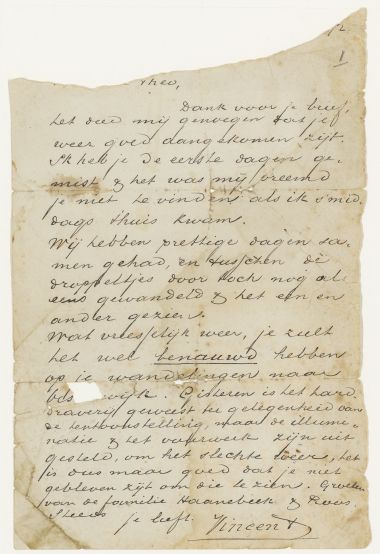 72.
1
Theo,
Dank voor je brief,
het deed mij genoegen dat je
weer goed aangekomen zijt.
Ik heb je de eerste dagen ge-
mist & het was mij vreemd
je niet te vinden als ik s'mid-
dags thuis kwam.
Wij hebben prettige dagen sa-
men gehad, en tusschen de
droppeltjes door toch nog al
eens gewandeld & het een en
ander gezien.
Wat vreesselijk weer, je zult
het wel benauwd hebben
op je wandelingen naar
wijk. Gisteren is het hard-
draverij geweest ter gelegenheid van
de tentoonstelling, maar de illumi-
natie & het vuurwerk zijn uit-
gesteld, om het slechte weer, het
is dus maar goed dat je niet
gebleven zijt om die te zien. Groeten
van de familie Haanebeek & Roos.
Steeds
je liefh. Vincent